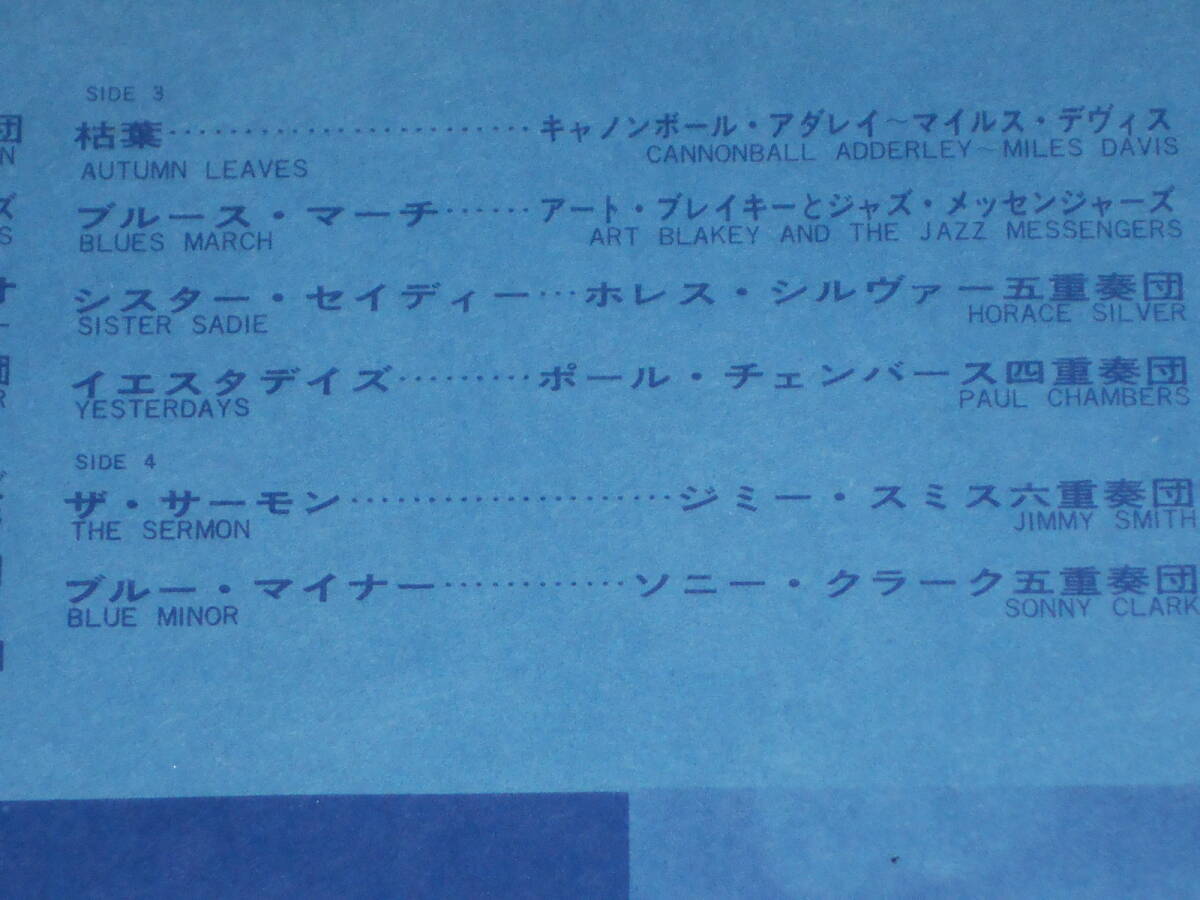 SIDE 3
枯葉........................キャノンボール・アダレイ～マイルス・デヴィス
AUTUMN LEAVES CANNONBALL ADDERLEY～MILES DAVIS
ブルース・マーチ......アート・ブレイキーとジャズ・メッセンジャーズ
BLUES MARCH ART BLAKEY AND THE JAZZ MESSENGERS
シスター・セイディー...ホレス・シルヴァー五重奏団
SISTER SADIE HORACE SILVER
イエスタデイズ.........ポール・チェンバース四重奏団
YESTERDAYS PAUL CHAMBERS
SIDE 4
ザ・サーモン.....................ジミー・スミス六重奏団
THE SERMON JIMMY SMITH
ブルー・マイナー............ソニー・クラーク五重奏団
BLUE MINOR SONNY CLARK